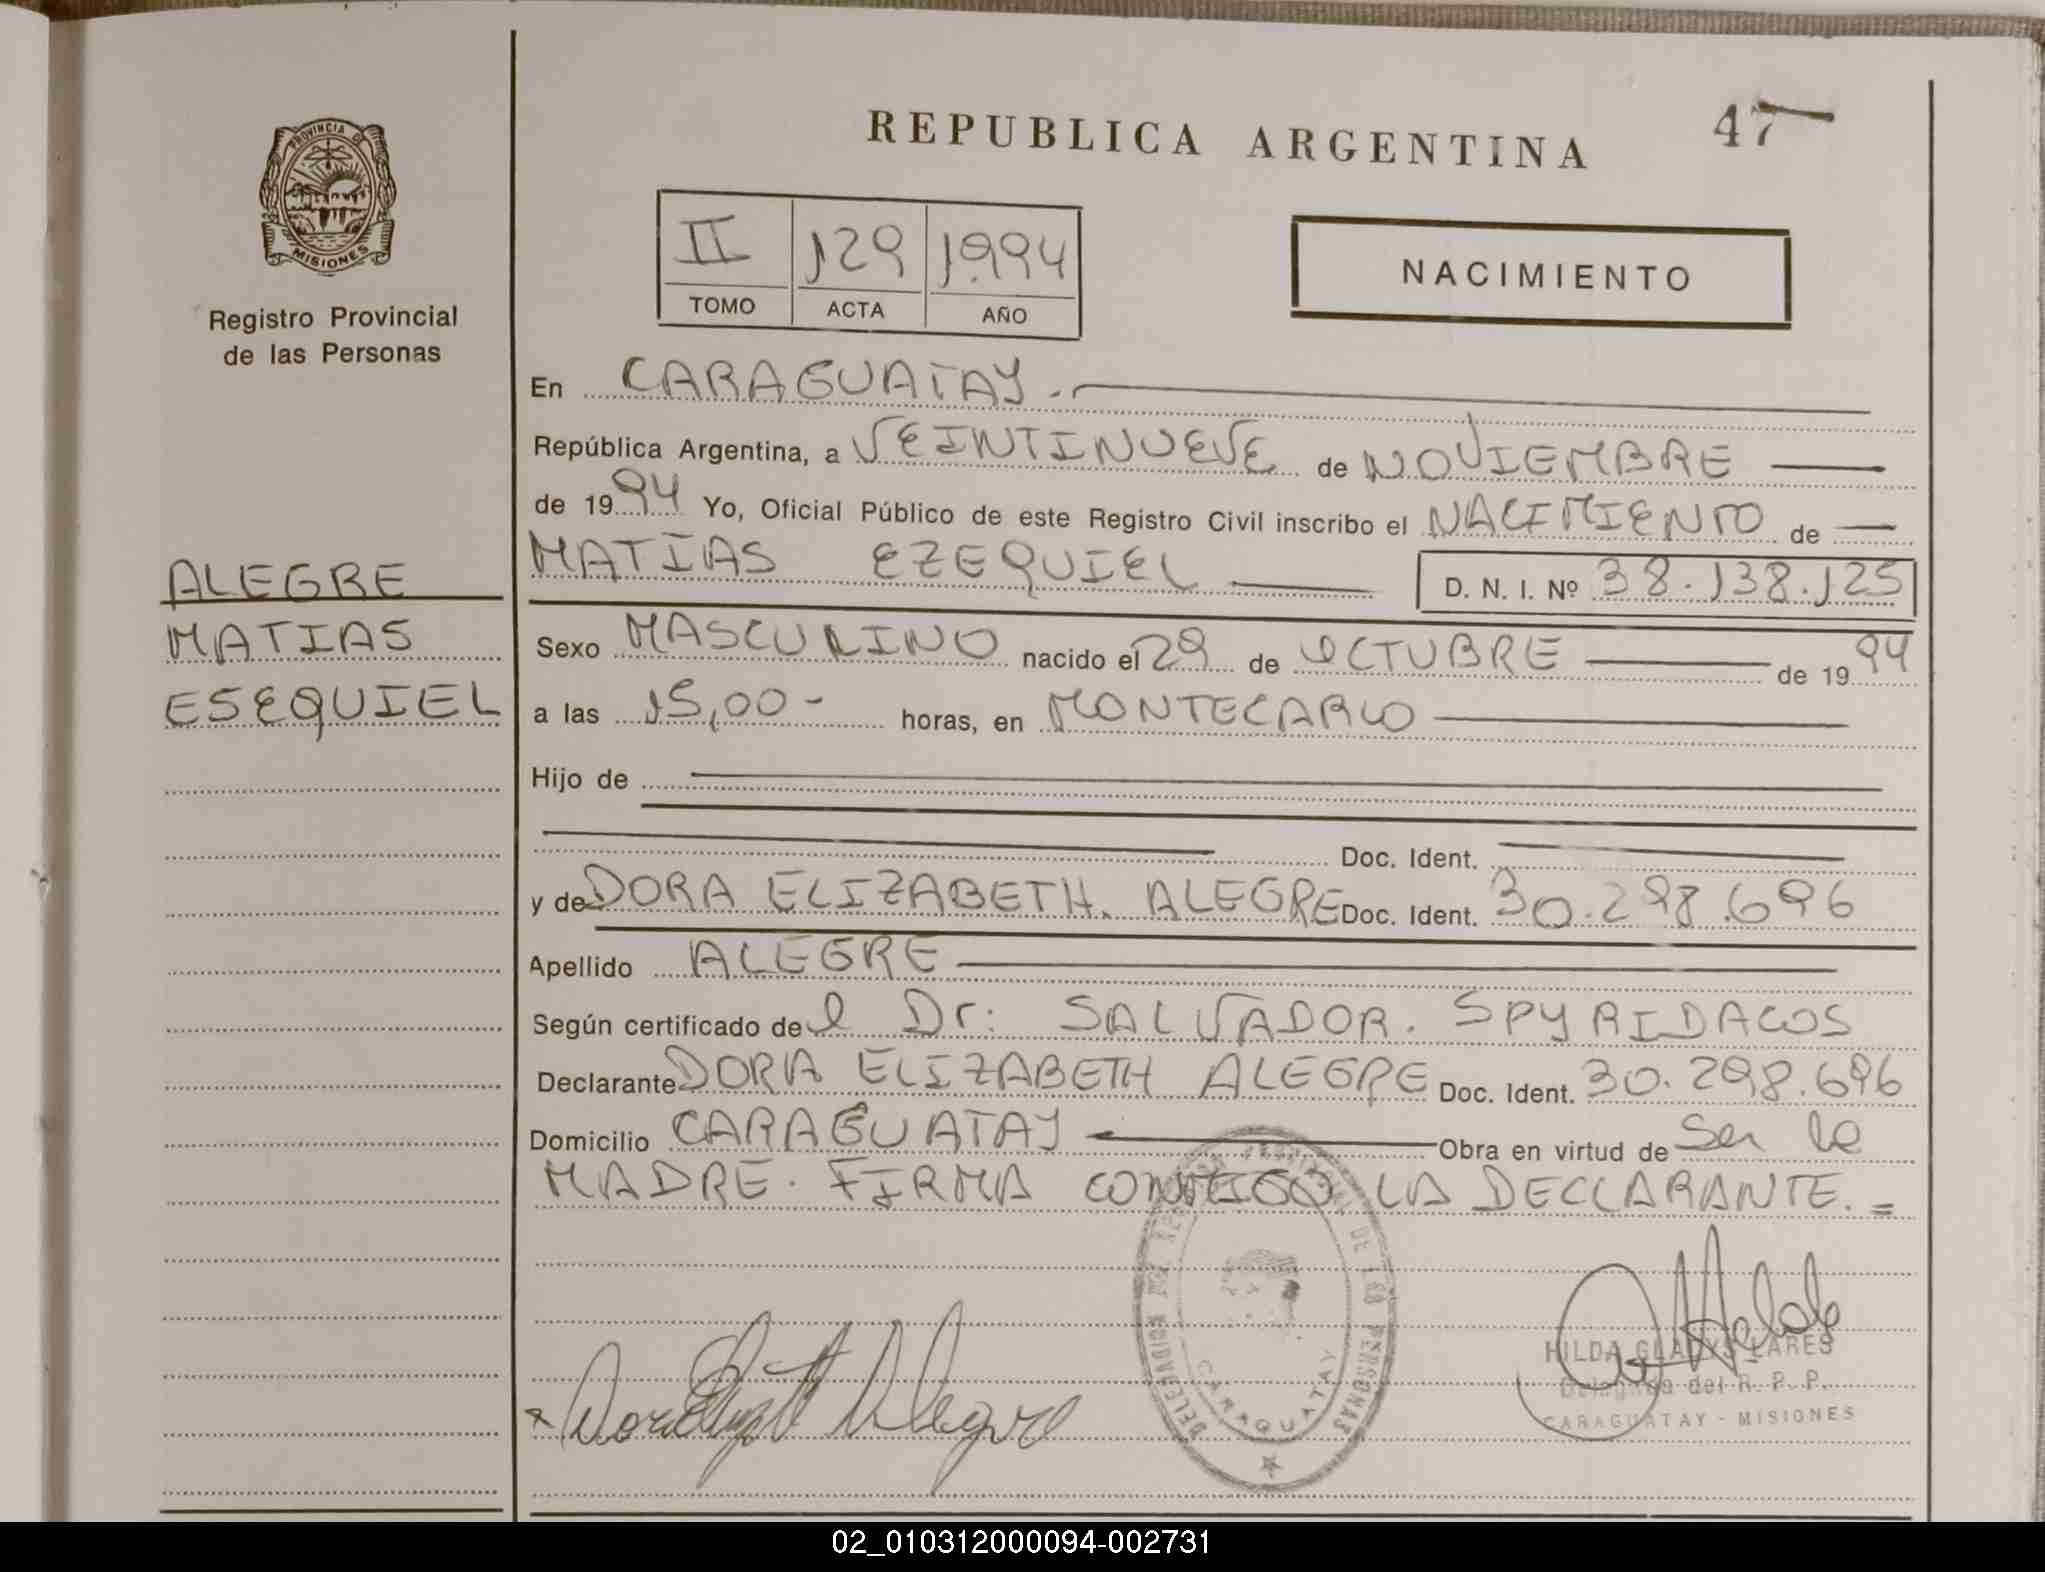 REPUBLICA ARGENTINA
47
PROVINCIA DE
MISIONES
Registro Provincial
de las Personas
II 129 1994
TOMO ACTA AÑO
NACIMIENTO
En CARAGUATAY.
República Argentina, a VEINTINUEVE de NOVIEMBRE
de 1994 Yo, Oficial Público de este Registro Civil inscribo el NACIMIENTO de
MATIAS EZEQUIEL D. N. I. Nº 38.138.125
ALEGRE
MATIAS
ESEQUIEL
Sexo MASCULINO nacido el 29 de OCTUBRE de 1994
a las 15,00- horas, en MONTECARLO
Hijo de
Doc. Ident.
y de DORA ELIZABETH. ALEGRE Doc. Ident. 30.298.696
Apellido ALEGRE
Según certificado del Dr: SALVADOR. SPYRIDACOS
Declarante DORA ELIZABETH ALEGRE Doc. Ident. 30.298.696
Domicilio CARAGUATAY Obra en virtud de Ser la
MADRE. FIRMA CONMIGO LA DECLARANTE.=
DELEGACION DEL REGISTRO PROVINCIAL DE LAS PERSONAS
CARAGUATAY
Dora Elizabeth Alegre
HILDA GLADYS LARES
Delegada del R. P. P.
CARAGUATAY - MISIONES
02_010312000094-002731